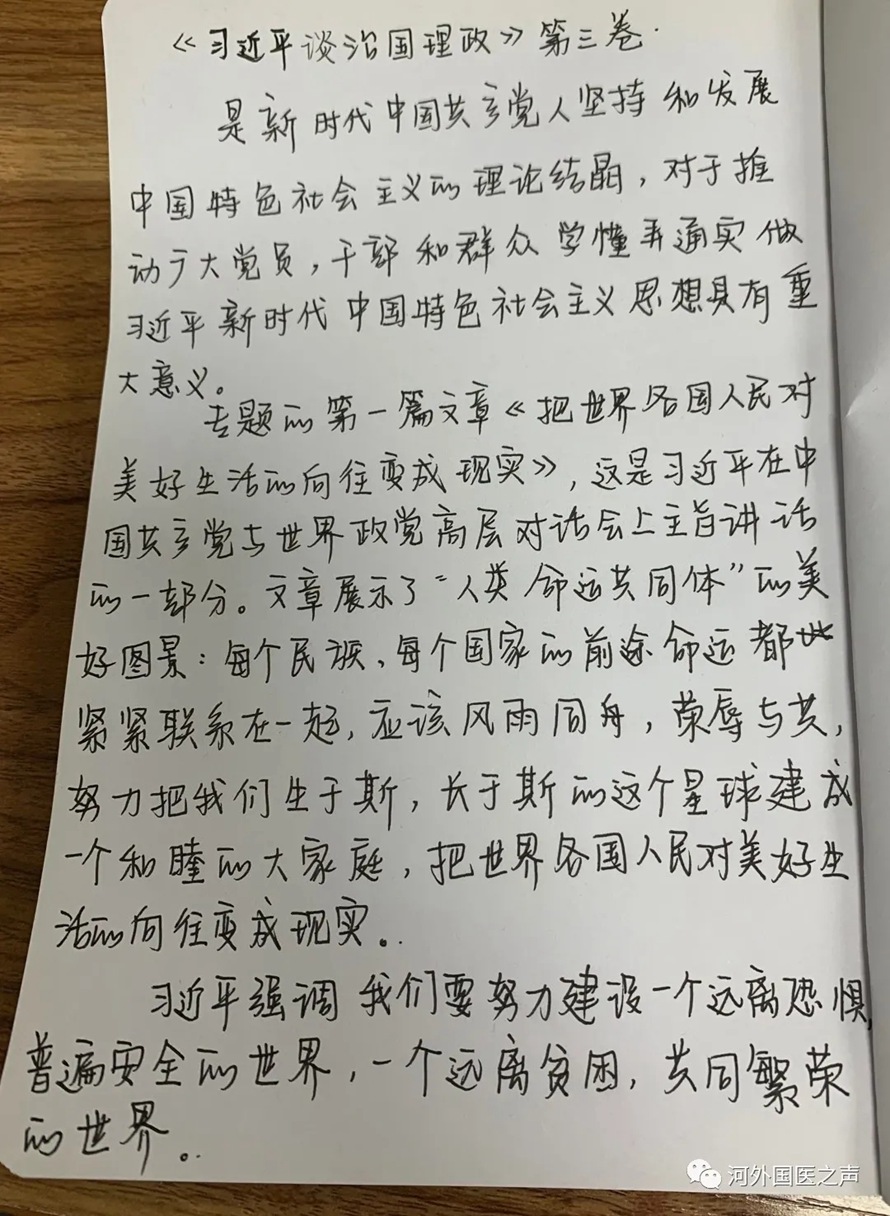 《习近平谈治国理政》第三卷.
是新时代中国共产党人坚持和发展
中国特色社会主义的理论结晶，对于推
动广大党员，干部和群众学懂弄通实做
习近平新时代中国特色社会主义思想具有重
大意义。
专题的第一篇文章《把世界各国人民对
美好生活的向往变成现实》，这是习近平在中
国共产党与世界政党高层对话会上主旨讲话
的一部分。文章展示了“人类命运共同体”的美
好图景：每个民族、每个国家的前途命运都
紧紧联系在一起，应该风雨同舟，荣辱与共，
努力把我们生于斯，长于斯的这个星球建成
一个和睦的大家庭，把世界各国人民对美好生
活的向往变成现实。
习近平强调我们要努力建设一个远离恐惧，
普遍安全的世界，一个远离贫困，共同繁荣
的世界。
河外国医之声